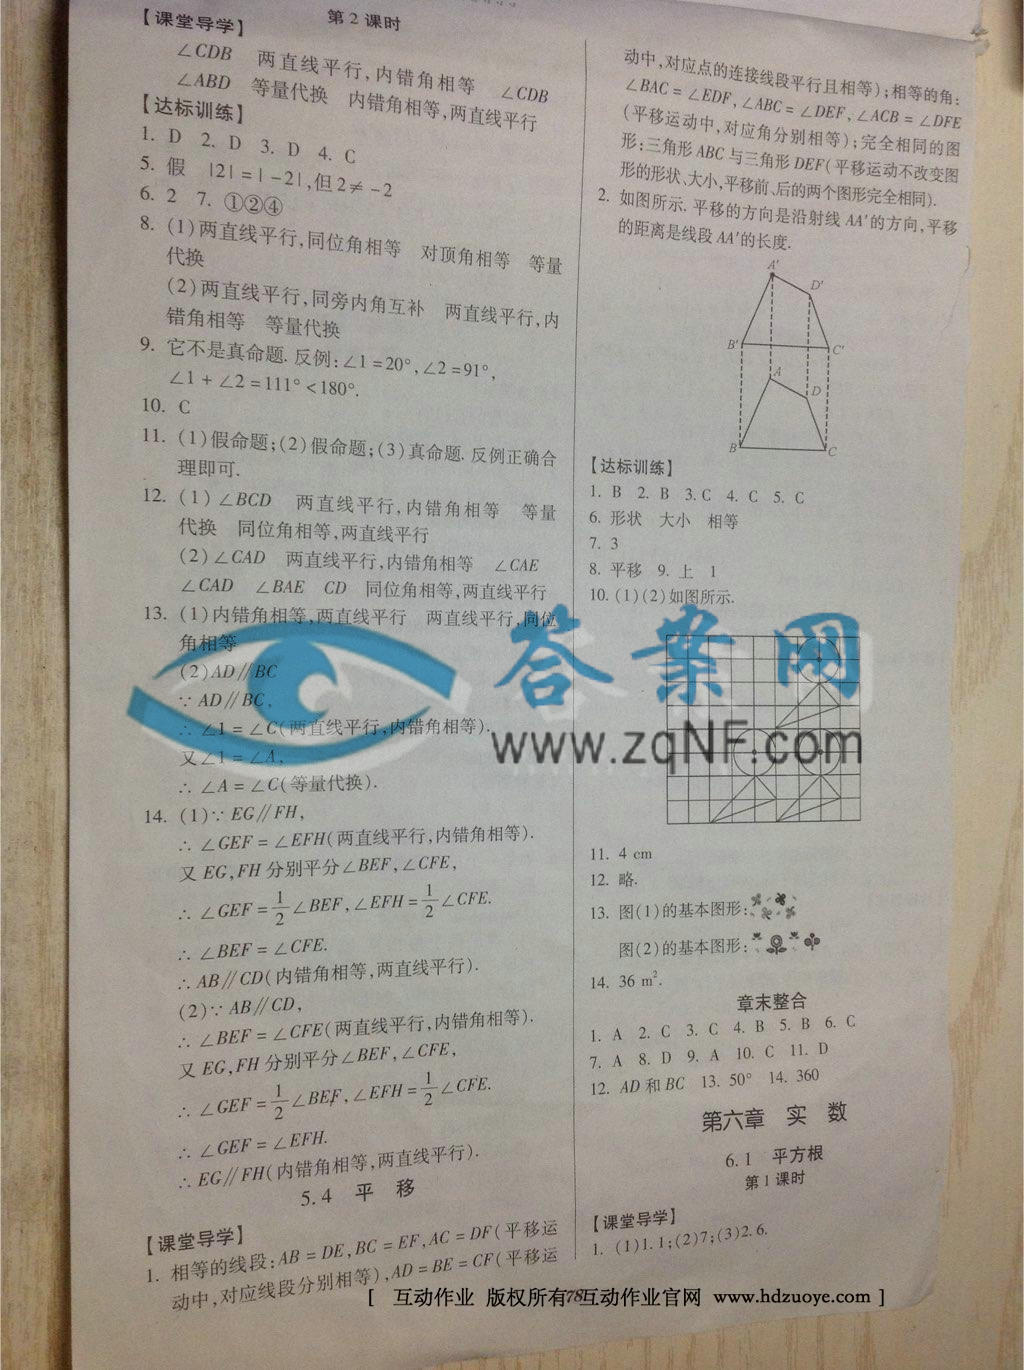 第 2 课时
【课堂导学】
∠CDB 两直线平行,内错角相等 ∠CDB
∠ABD 等量代换 内错角相等,两直线平行
【达标训练】
1. D 2. D 3. D 4. C
5. 假 |2|=|-2|,但2≠-2
6. 2 7. ①②④
8. (1)两直线平行,同位角相等 对顶角相等 等量
代换
(2)两直线平行,同旁内角互补 两直线平行,内
错角相等 等量代换
9. 它不是真命题. 反例:∠1=20°,∠2=91°,
∠1+∠2=111°<180°.
10. C
11. (1)假命题;(2)假命题;(3)真命题. 反例正确合
理即可.
12. (1)∠BCD 两直线平行,内错角相等 等量
代换 同位角相等,两直线平行
(2)∠CAD 两直线平行,内错角相等 ∠CAE
∠CAD ∠BAE CD 同位角相等,两直线平行
13. (1)内错角相等,两直线平行 两直线平行,同位
角相等
(2)AD∥BC
∵AD∥BC,
∴∠1=∠C(两直线平行,内错角相等).
又∠1=∠A,
∴∠A=∠C(等量代换).
14. (1)∵EG∥FH,
∴∠GEF=∠EFH(两直线平行,内错角相等).
又EG,FH分别平分∠BEF,∠CFE,
∴∠GEF=1/2∠BEF,∠EFH=1/2∠CFE.
∴∠BEF=∠CFE.
∴AB∥CD(内错角相等,两直线平行).
(2)∵AB∥CD,
∴∠BEF=∠CFE(两直线平行,内错角相等).
又EG,FH分别平分∠BEF,∠CFE,
∴∠GEF=1/2∠BEF,∠EFH=1/2∠CFE.
∴∠GEF=∠EFH.
∴EG∥FH(内错角相等,两直线平行).
5.4 平 移
【课堂导学】
1. 相等的线段:AB=DE,BC=EF,AC=DF(平移运
动中,对应线段分别相等),AD=BE=CF(平移运
动中,对应点的连接线段平行且相等);相等的角:
∠BAC=∠EDF,∠ABC=∠DEF,∠ACB=∠DFE
(平移运动中,对应角分别相等);完全相同的图
形:三角形ABC与三角形DEF(平移运动不改变图
形的形状、大小,平移前、后的两个图形完全相同).
2. 如图所示. 平移的方向是沿射线AA′的方向,平移
的距离是线段AA′的长度.
A′
D′
B′
C′
A
D
B
C
【达标训练】
1. B 2. B 3. C 4. C 5. C
6. 形状 大小 相等
7. 3
8. 平移 9. 上 1
10. (1)(2)如图所示.
答案网
www.zqNF.com
11. 4 cm
12. 略.
13. 图(1)的基本图形:
图(2)的基本图形:
14. 36 m².
章末整合
1. A 2. C 3. C 4. B 5. B 6. C
7. A 8. D 9. A 10. C 11. D
12. AD和BC 13. 50° 14. 360
第六章 实 数
6.1 平方根
第1课时
【课堂导学】
1. (1)1.1;(2)7;(3)2.6.
78
[ 互动作业 版权所有 互动作业官网 www.hdzuoye.com ]